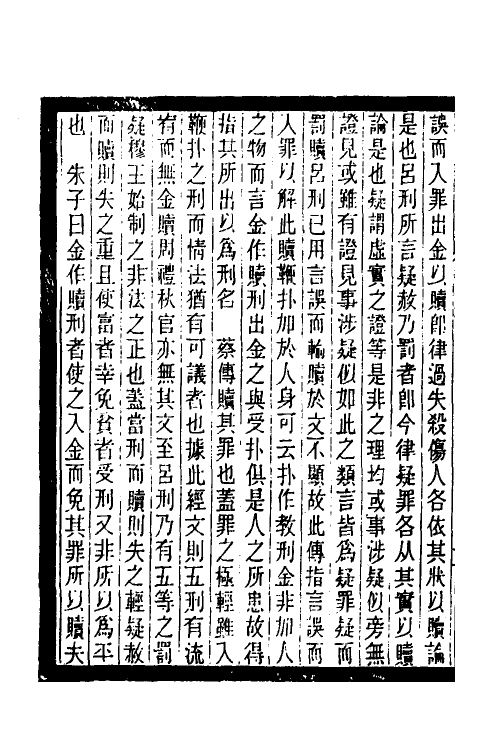 誤而入罪出金以贖卽律過失殺傷人各依其狀以贖論
是也呂刑所言疑赦乃罰者卽今律疑罪各从其實以贖
論是也疑謂虛實之證等是非之理均或事涉疑似旁無
證見或雖有證見事涉疑似如此之類言皆爲疑罪疑而
罰贖呂刑已用言誤而輸贖於文不顯故此傳指言誤而
入罪以解此贖鞭扑加於人身可云扑作教刑金非加人
之物而言金作贖刑出金之與受扑俱是人之所患故得
指其所出以爲刑名　蔡傳贖其罪也蓋罪之極輕雖入
鞭扑之刑而情法猶有可議者也據此經文則五刑有流
宥而無金贖周禮秋官亦無其文至呂刑乃有五等之罰
疑穆王始制之非法之正也蓋當刑而贖則失之輕疑赦
而贖則失之重且使富者幸免貧者受刑又非所以爲平
也　朱子曰金作贖刑者使之入金而免其罪所以贖夫